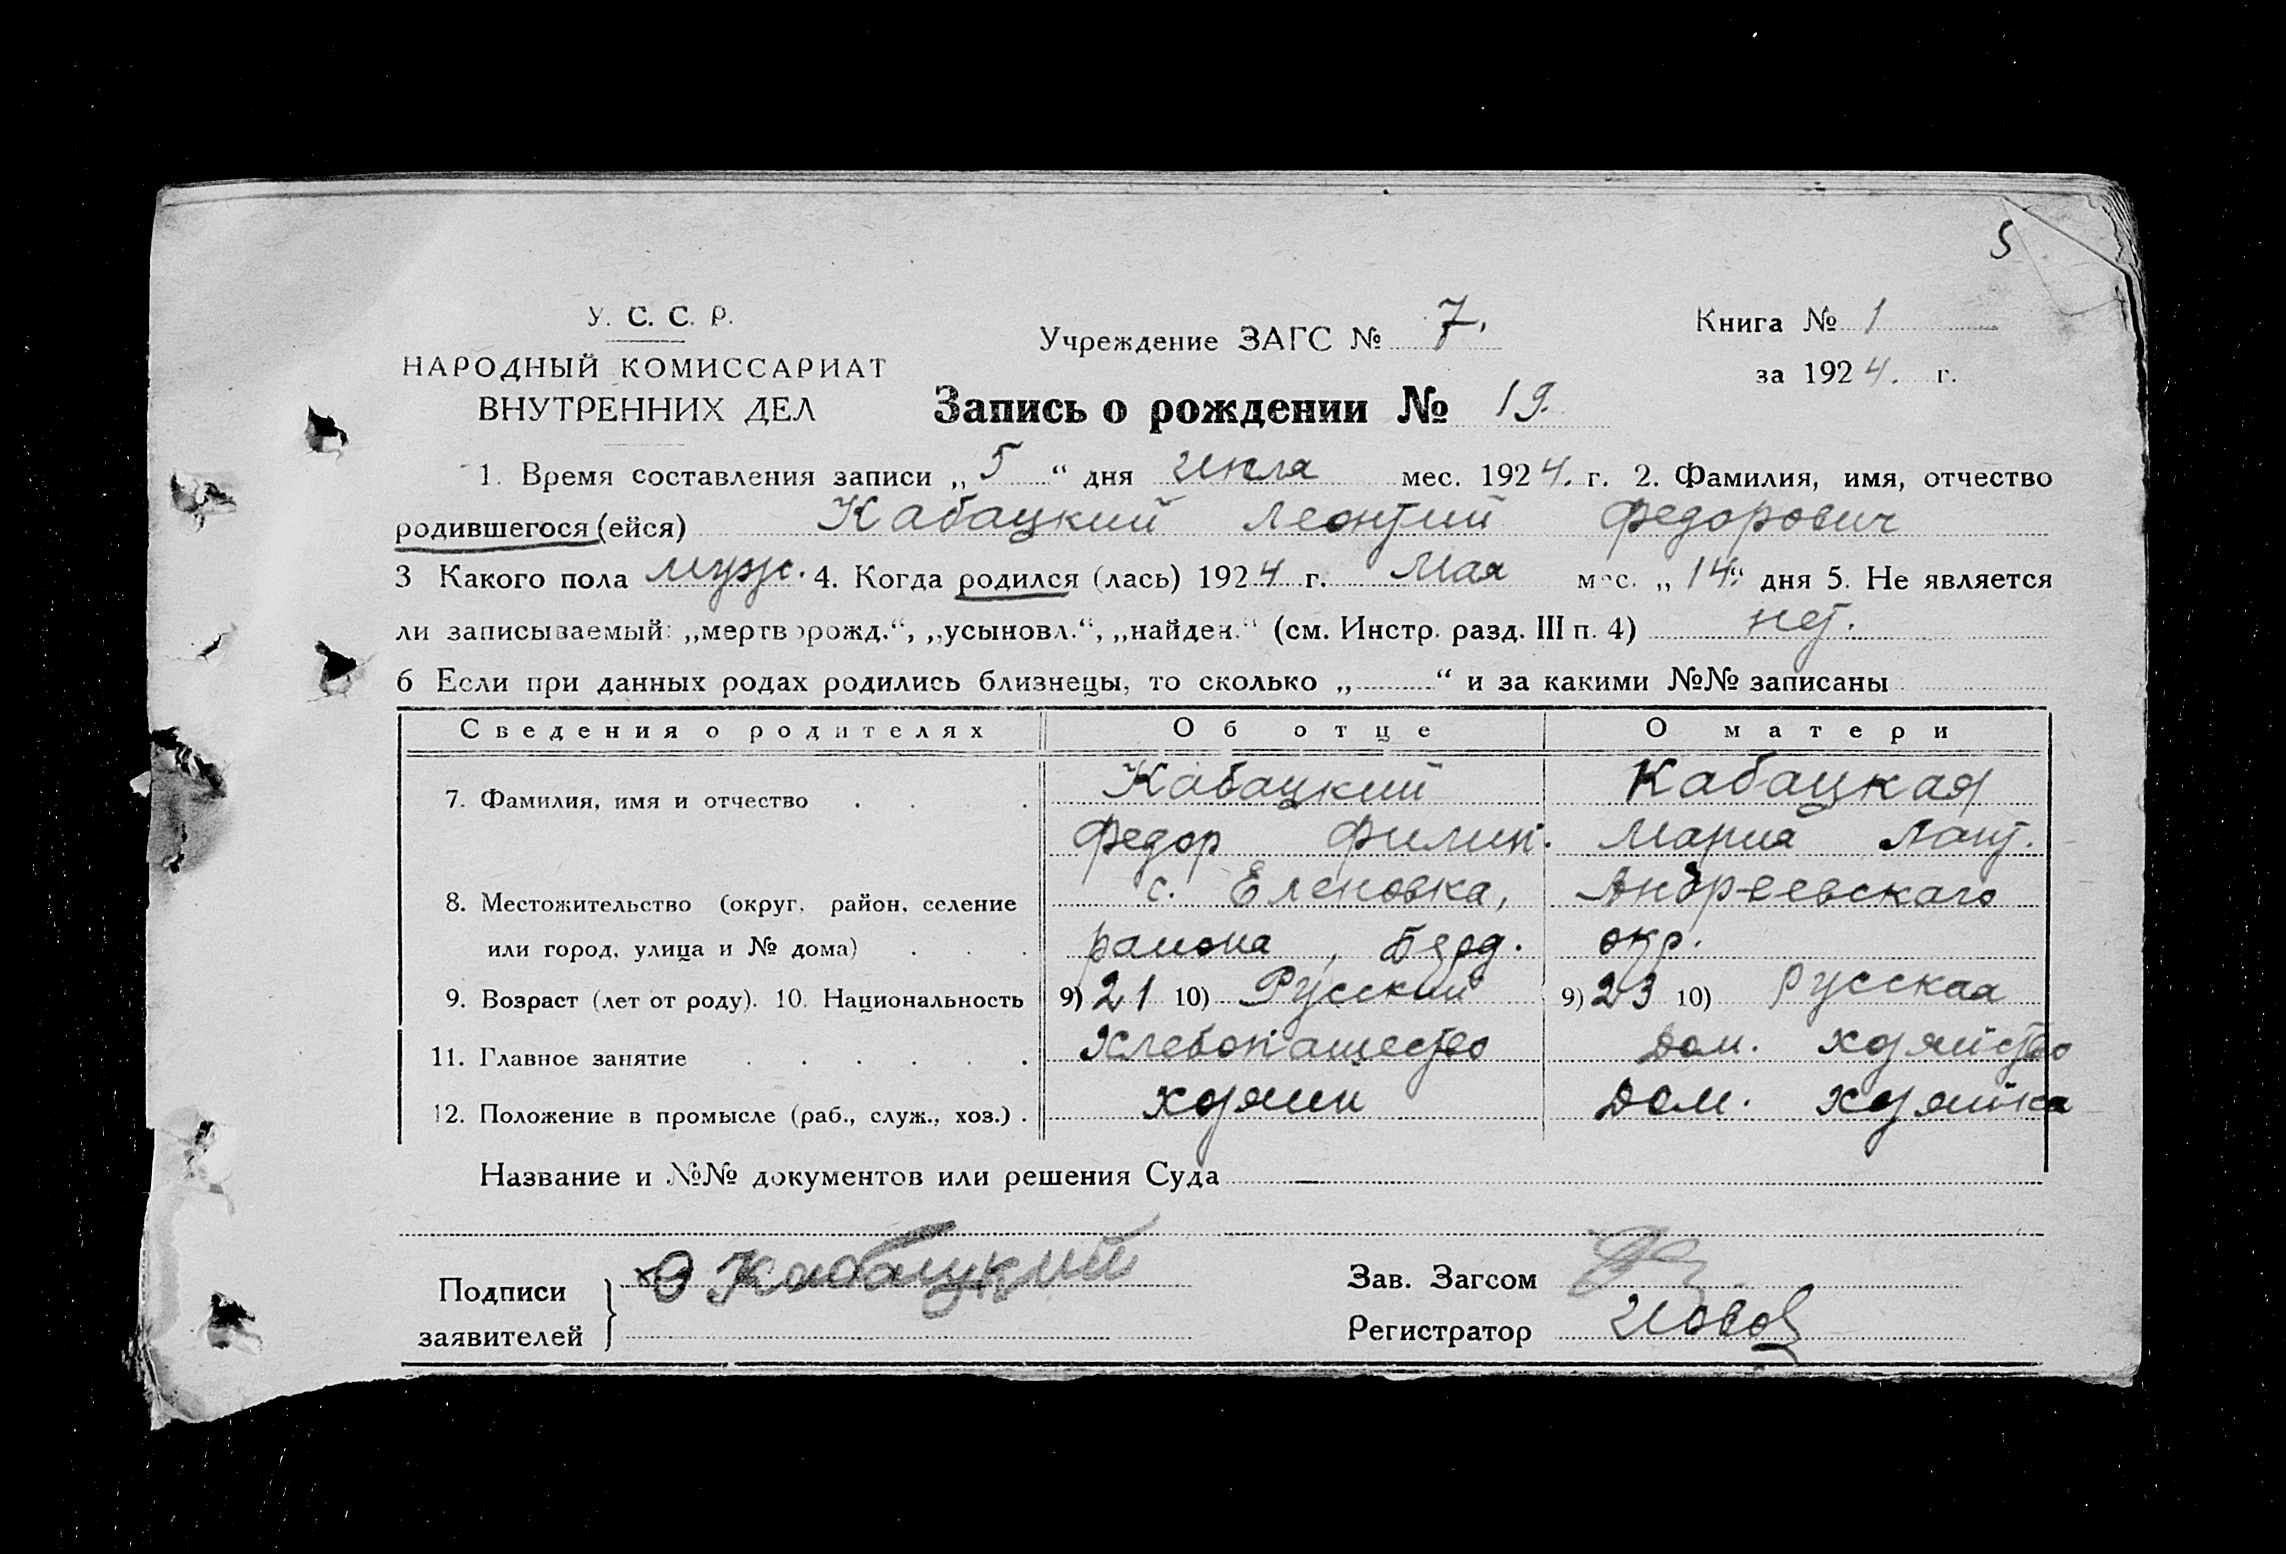 5
У. С. С. Р.
НАРОДНЫЙ КОМИССАРИАТ
ВНУТРЕННИХ ДЕЛ
Учреждение ЗАГС № 7.
Книга № 1
за 1924. г.
Запись о рождении № 19.
1. Время составления записи „5“ дня мес. 1924. г. 2. Фамилия, имя, отчество
родившегося (ейся) Кабацкий Леонтий Федорович
3 Какого пола муж. 4. Когда родился (лась) 1924 г. Мая мес. „14“ дня 5. Не является
ли записываемый: „мертворожд.“, „усыновл.“, „найден.“ (см. Инстр. разд. III п. 4) нет.
6 Если при данных родах родились близнецы, то сколько „ “ и за какими №№ записаны
Сведения о родителях Об отце О матери
7. Фамилия, имя и отчество Кабацкий Кабацкая
Федор Филип. Мария
8. Местожительство (округ, район, селение с. Еленовка, Андреевскаго
или город, улица и № дома) района, Берд. окр.
9. Возраст (лет от роду). 10. Национальность 9) 21 10) Русский 9) 23 10) Русская
11. Главное занятие Хлебопашество Дом. хозяйство
12. Положение в промысле (раб., служ., хоз.) хозяин Дом. хозяйка
Название и №№ документов или решения Суда
Подписи Кабацкий Зав. Загсом
заявителей Регистратор